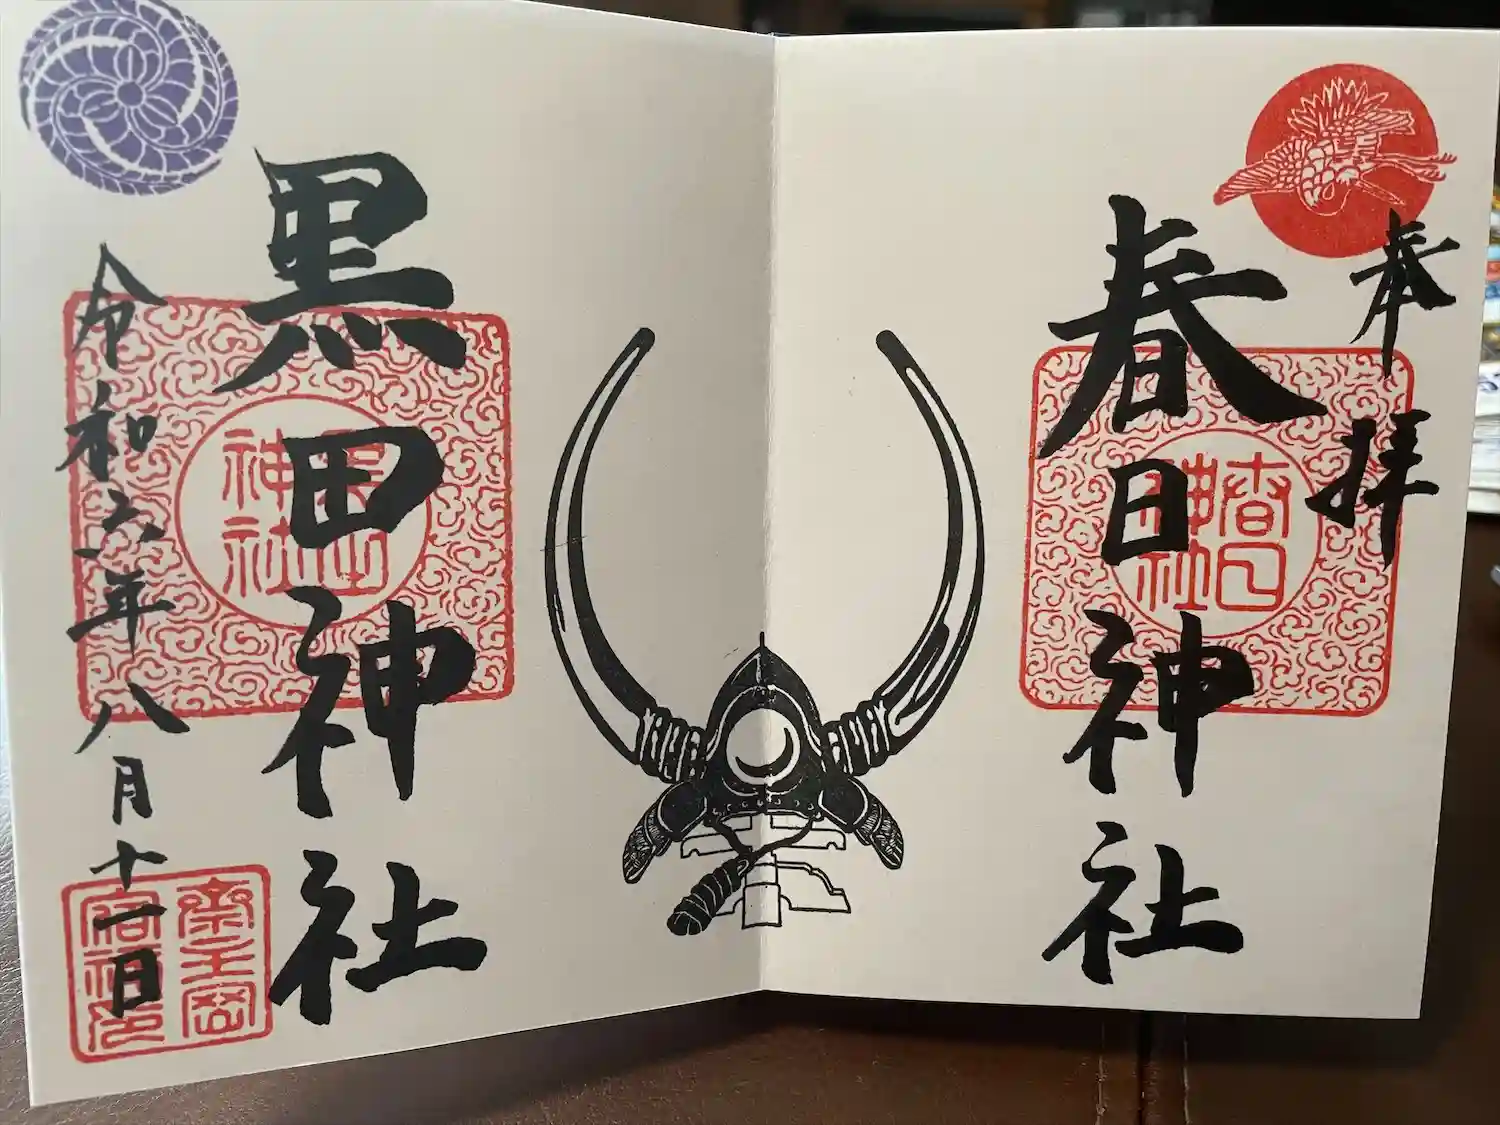 奉拝
春日神社
春日神社
黒田神社
黒田神社
令和六年八月十一日